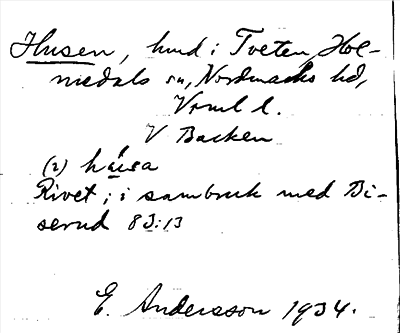 Husen, hmd i Tveten, Hol-
medals sn, Nordmarks hd,
Vrml l.
V Backen
(2) hǻsa
Rivet; i sambruk med Bi-
serud 83:13
E. Andersson 1934.